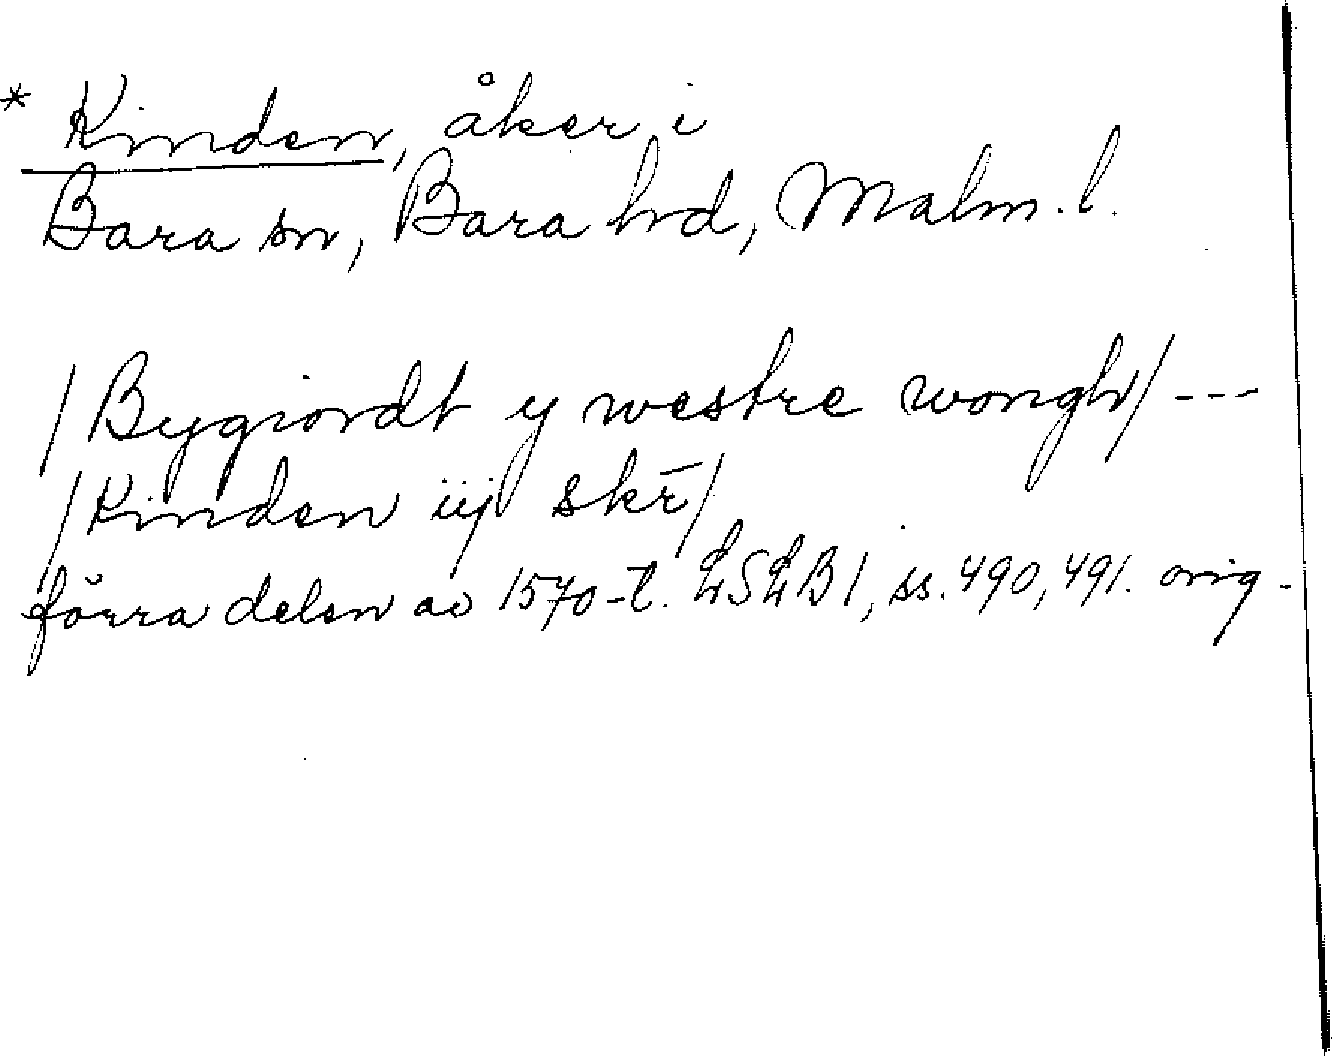 * Kinden, åker i
Bara sn, Bara hd, Malm. l.
/Bygiordt y westre wongh/ ---
/Kinden iij skr̄/
förra delen av 1570-t. LSLB 1, ss. 490, 491. orig.